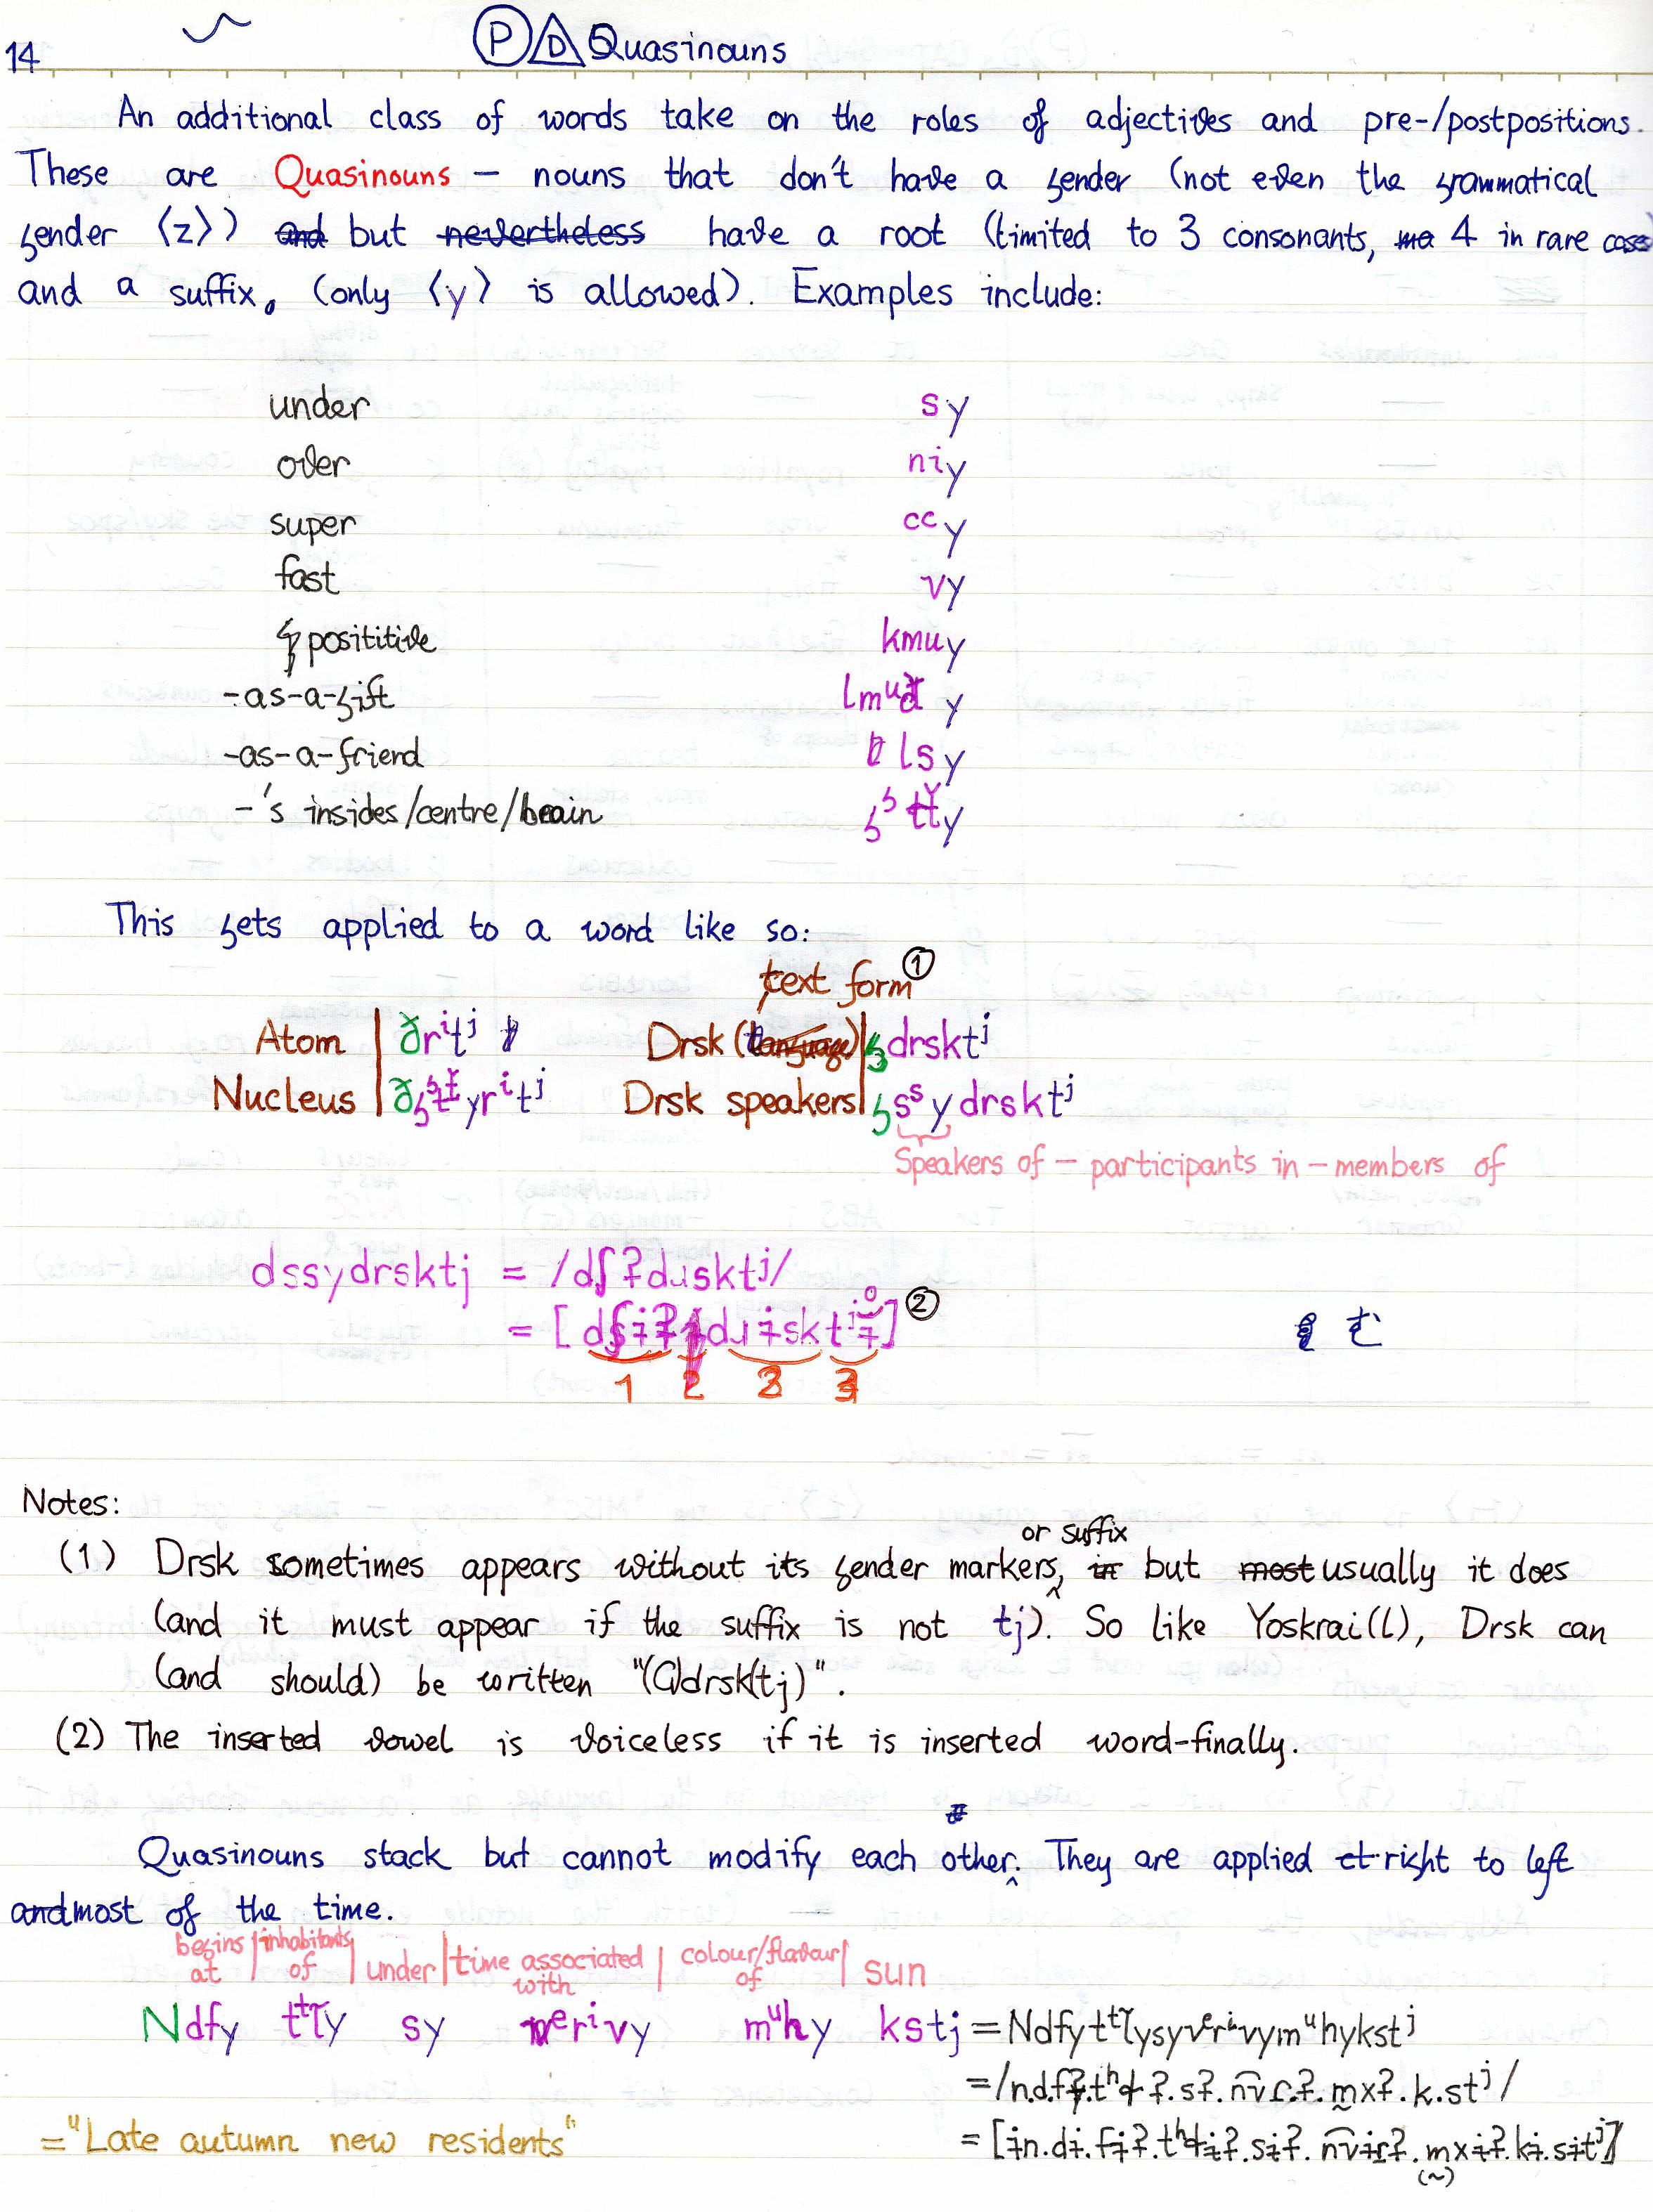 14
P D Quasinouns
An additional class of words take on the roles of adjectives and pre-/postpositions.
These are Quasinouns – nouns that don't have a gender (not even the grammatical
gender ⟨z⟩) and but nevertheless have a root (limited to 3 consonants, ma 4 in rare cases
and a suffix. (only ⟨y⟩ is allowed). Examples include:
under sy
over niy
super ccy
fast vy
posititive kmuy
-as-a-gift
-as-a-friend lsy
-'s insides/centre/brain
This gets applied to a word like so:
text form ①
Atom | ðrⁱtʲ Drsk (language) | ʒdrsktʲ
Nucleus Drsk speakers | ʒsˢydrsktʲ
Speakers of – participants in – members of
dssydrsktj = /dʃʔdɹsktʲ/
②
1 2 3
む
Notes:
or suffix
(1) Drsk sometimes appears without its gender markers, in but most usually it does
(and it must appear if the suffix is not tj). So like Yoskrai(l), Drsk can
(and should) be written "(G)drsk(tj)".
(2) The inserted vowel is voiceless if it is inserted word-finally.
Quasinouns stack but cannot modify each other. They are applied right to left
and most of the time.
begins at | inhabitants of | under | time associated with | colour/flavour of | sun
Ndfy sy mᵘhy kstj
="Late autumn new residents"